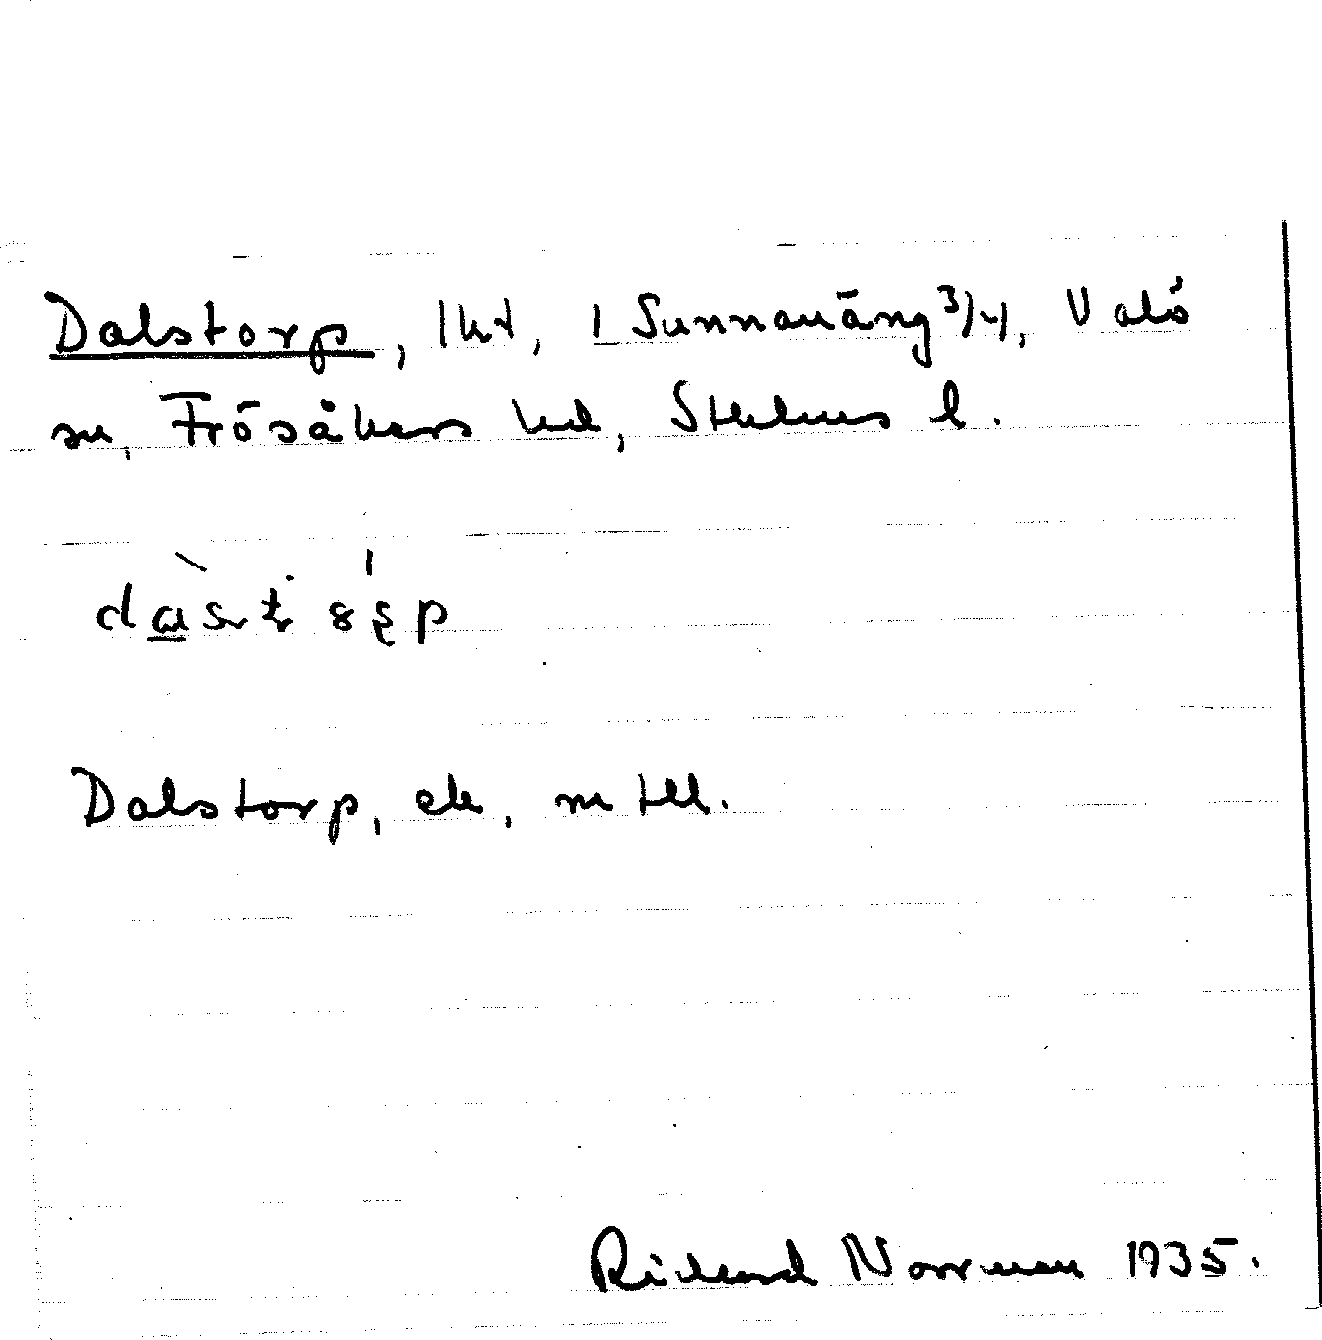 Dalstorp, lht, 1 Sunnanäng 3/4, Valö
sn, Frösåkers hd, Sthlms l.
Dalstorp, ek, m tll.
Richard Norrman 1935.